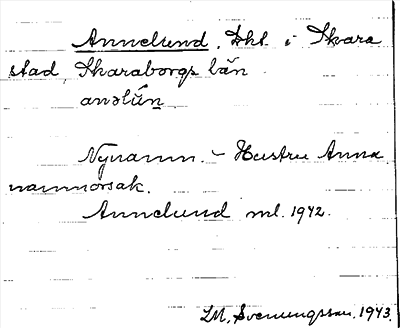 Annelund, Lht. i Skara
stad, Skaraborgs län
anəlún
Nynamn. - Hustru Anna
namnorsak.
Annelund ml. 1942.
LM, Svenungsson, 1943.